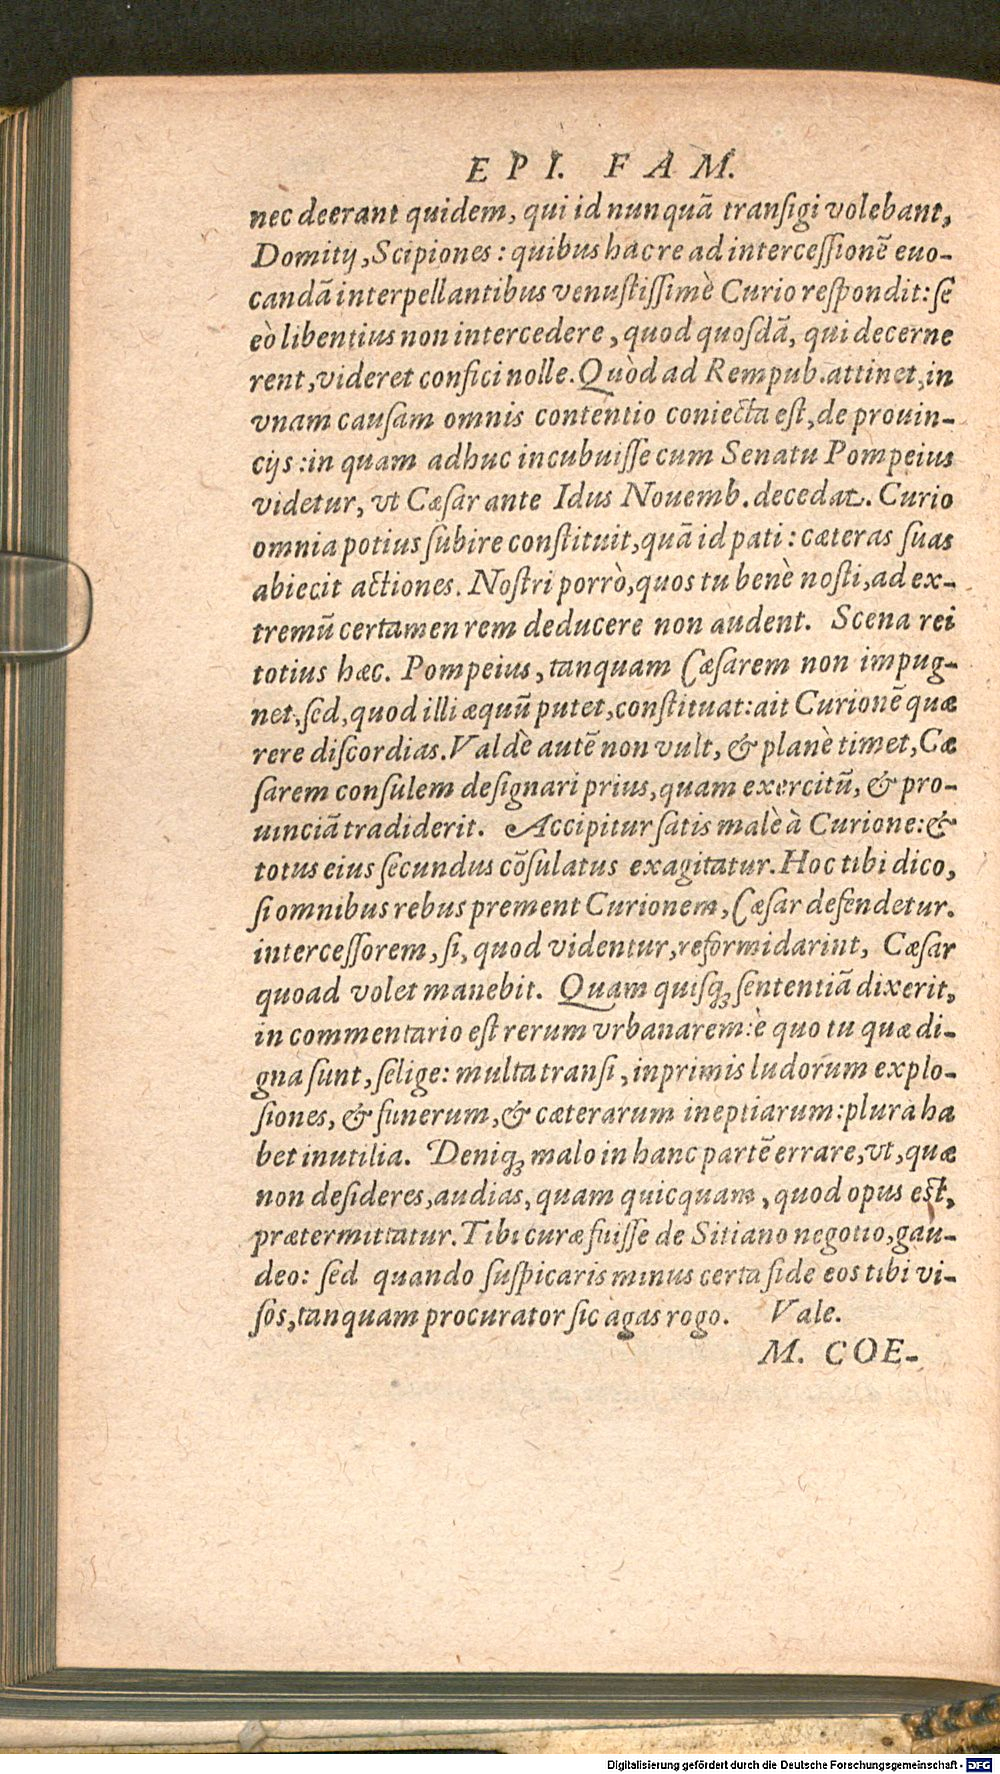 EPI. FAM.
nec deerant quidem, qui id nunquā transigi volebant,
Domitij, Scipiones: quibus hac re ad intercessionē euo-
candā interpellantibus venustissimè Curio respondit: se
eò libentius non intercedere, quod quosdā, qui decerne
rent, videret confici nolle. Quòd ad Rempub. attinet, in
vnam causam omnis contentio coniecta est, de prouin-
cijs: in quam adhuc incubuisse cum Senatu Pompeius
videtur, vt Cæsar ante Idus Nouemb. decedat. Curio
omnia potius subire constituit, quā id pati: cæteras suas
abiecit actiones. Nostri porrò, quos tu benè nosti, ad ex-
tremū certamen rem deducere non audent. Scena rei
totius hæc. Pompeius, tanquam Cæsarem non impug-
net, sed, quod illi æquū putet, constituat: ait Curionē quæ
rere discordias. Valdè autē non vult, & planè timet, Cæ
sarem consulem designari prius, quam exercitū, & pro-
uinciā tradiderit. Accipitur satis malè à Curione: &
totus eius secundus cōsulatus exagitatur. Hoc tibi dico,
si omnibus rebus prement Curionem, Cæsar defendetur.
intercessorem, si, quod videntur, reformidarint, Cæsar
quoad volet manebit. Quam quisq; sententiā dixerit,
in commentario est rerum vrbanarem: è quo tu quæ di-
gna sunt, selige: multa transi, inprimis ludorum explo-
siones, & funerum, & cæterarum ineptiarum: plura ha
bet inutilia. Deniq; malo in hanc partē errare, vt, quæ
non desideres, audias, quam quicquam, quod opus est,
prætermittatur. Tibi curæ fuisse de Sitiano negotio, gau-
deo: sed quando suspicaris minus certa fide eos tibi vi-
sos, tanquam procurator sic agas rogo. Vale.
M. COE-
Digitalisierung gefördert durch die Deutsche Forschungsgemeinschaft - DFG